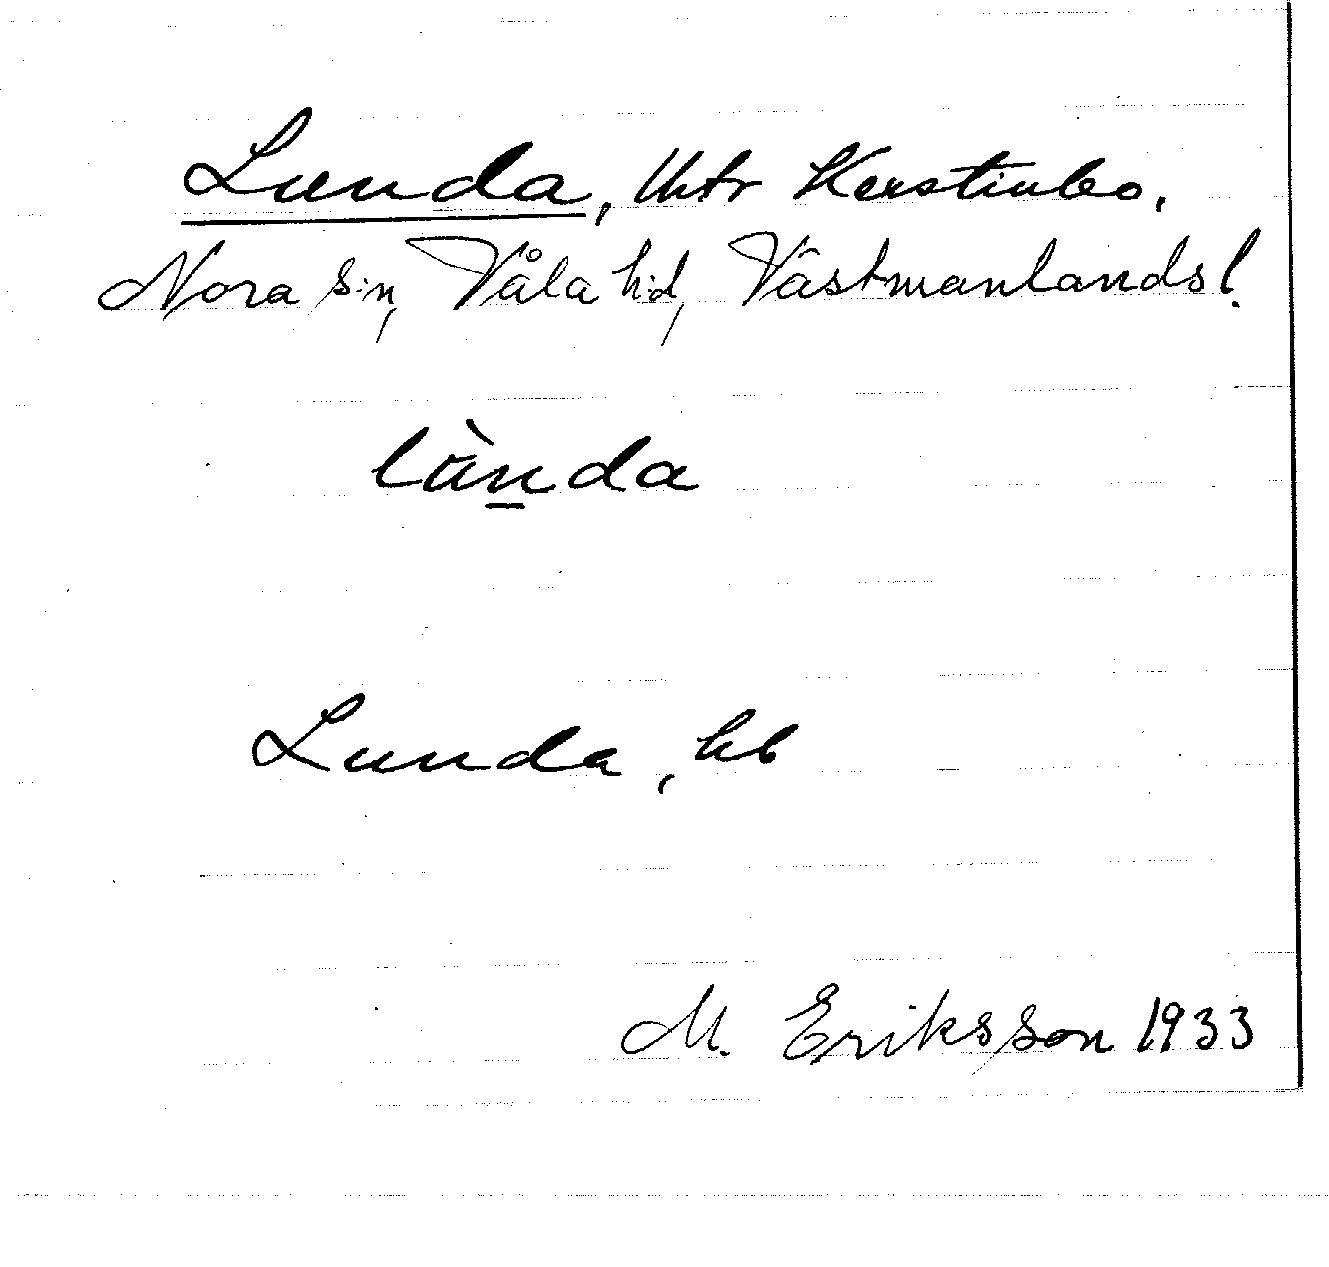 Lunda, Utr Kerstinbo,
Nora s:n, Våla hd, Västmanlands l.
lùnda
Lunda, hb
M. Eriksson 1933